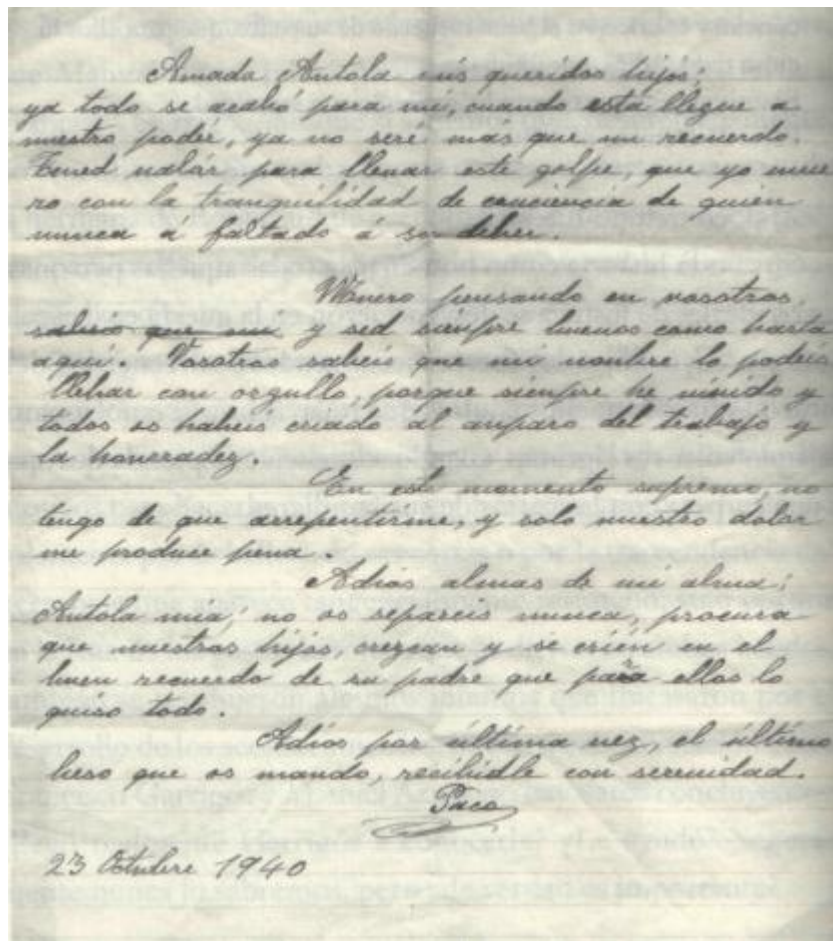 Amada Antola mis queridos hijos;
ya todo se acabó para mi, cuando esta llegue a
vuestro poder, ya no seré más que un recuerdo.
Tened valór para llevar este golpe, que yo mue
ro con la tranquilidad de conciencia de quien
nunca á faltado á su deber.
Muero pensando en vosotros,
y sed siempre buenos como hasta
aqui. Vosotros sabeis que mi nombre lo podeis
llebar con orgullo, porque siempre he vivido y
todos os habeis criado al amparo del trabajo y
la honrradez.
En este momento supremo, no
tengo de que arrepentirme, y solo vuestro dolor
me produce pena.
Adios almas de mi alma;
Antola mia; no os separeis nunca, procura
que nuestros hijos, crezcan y se crién en el
buen recuerdo de su padre que para ellos lo
quiso todo.
Adios por última vez, el último
beso que os mando, recibidle con serenidad.
Paco
23 Octubre 1940